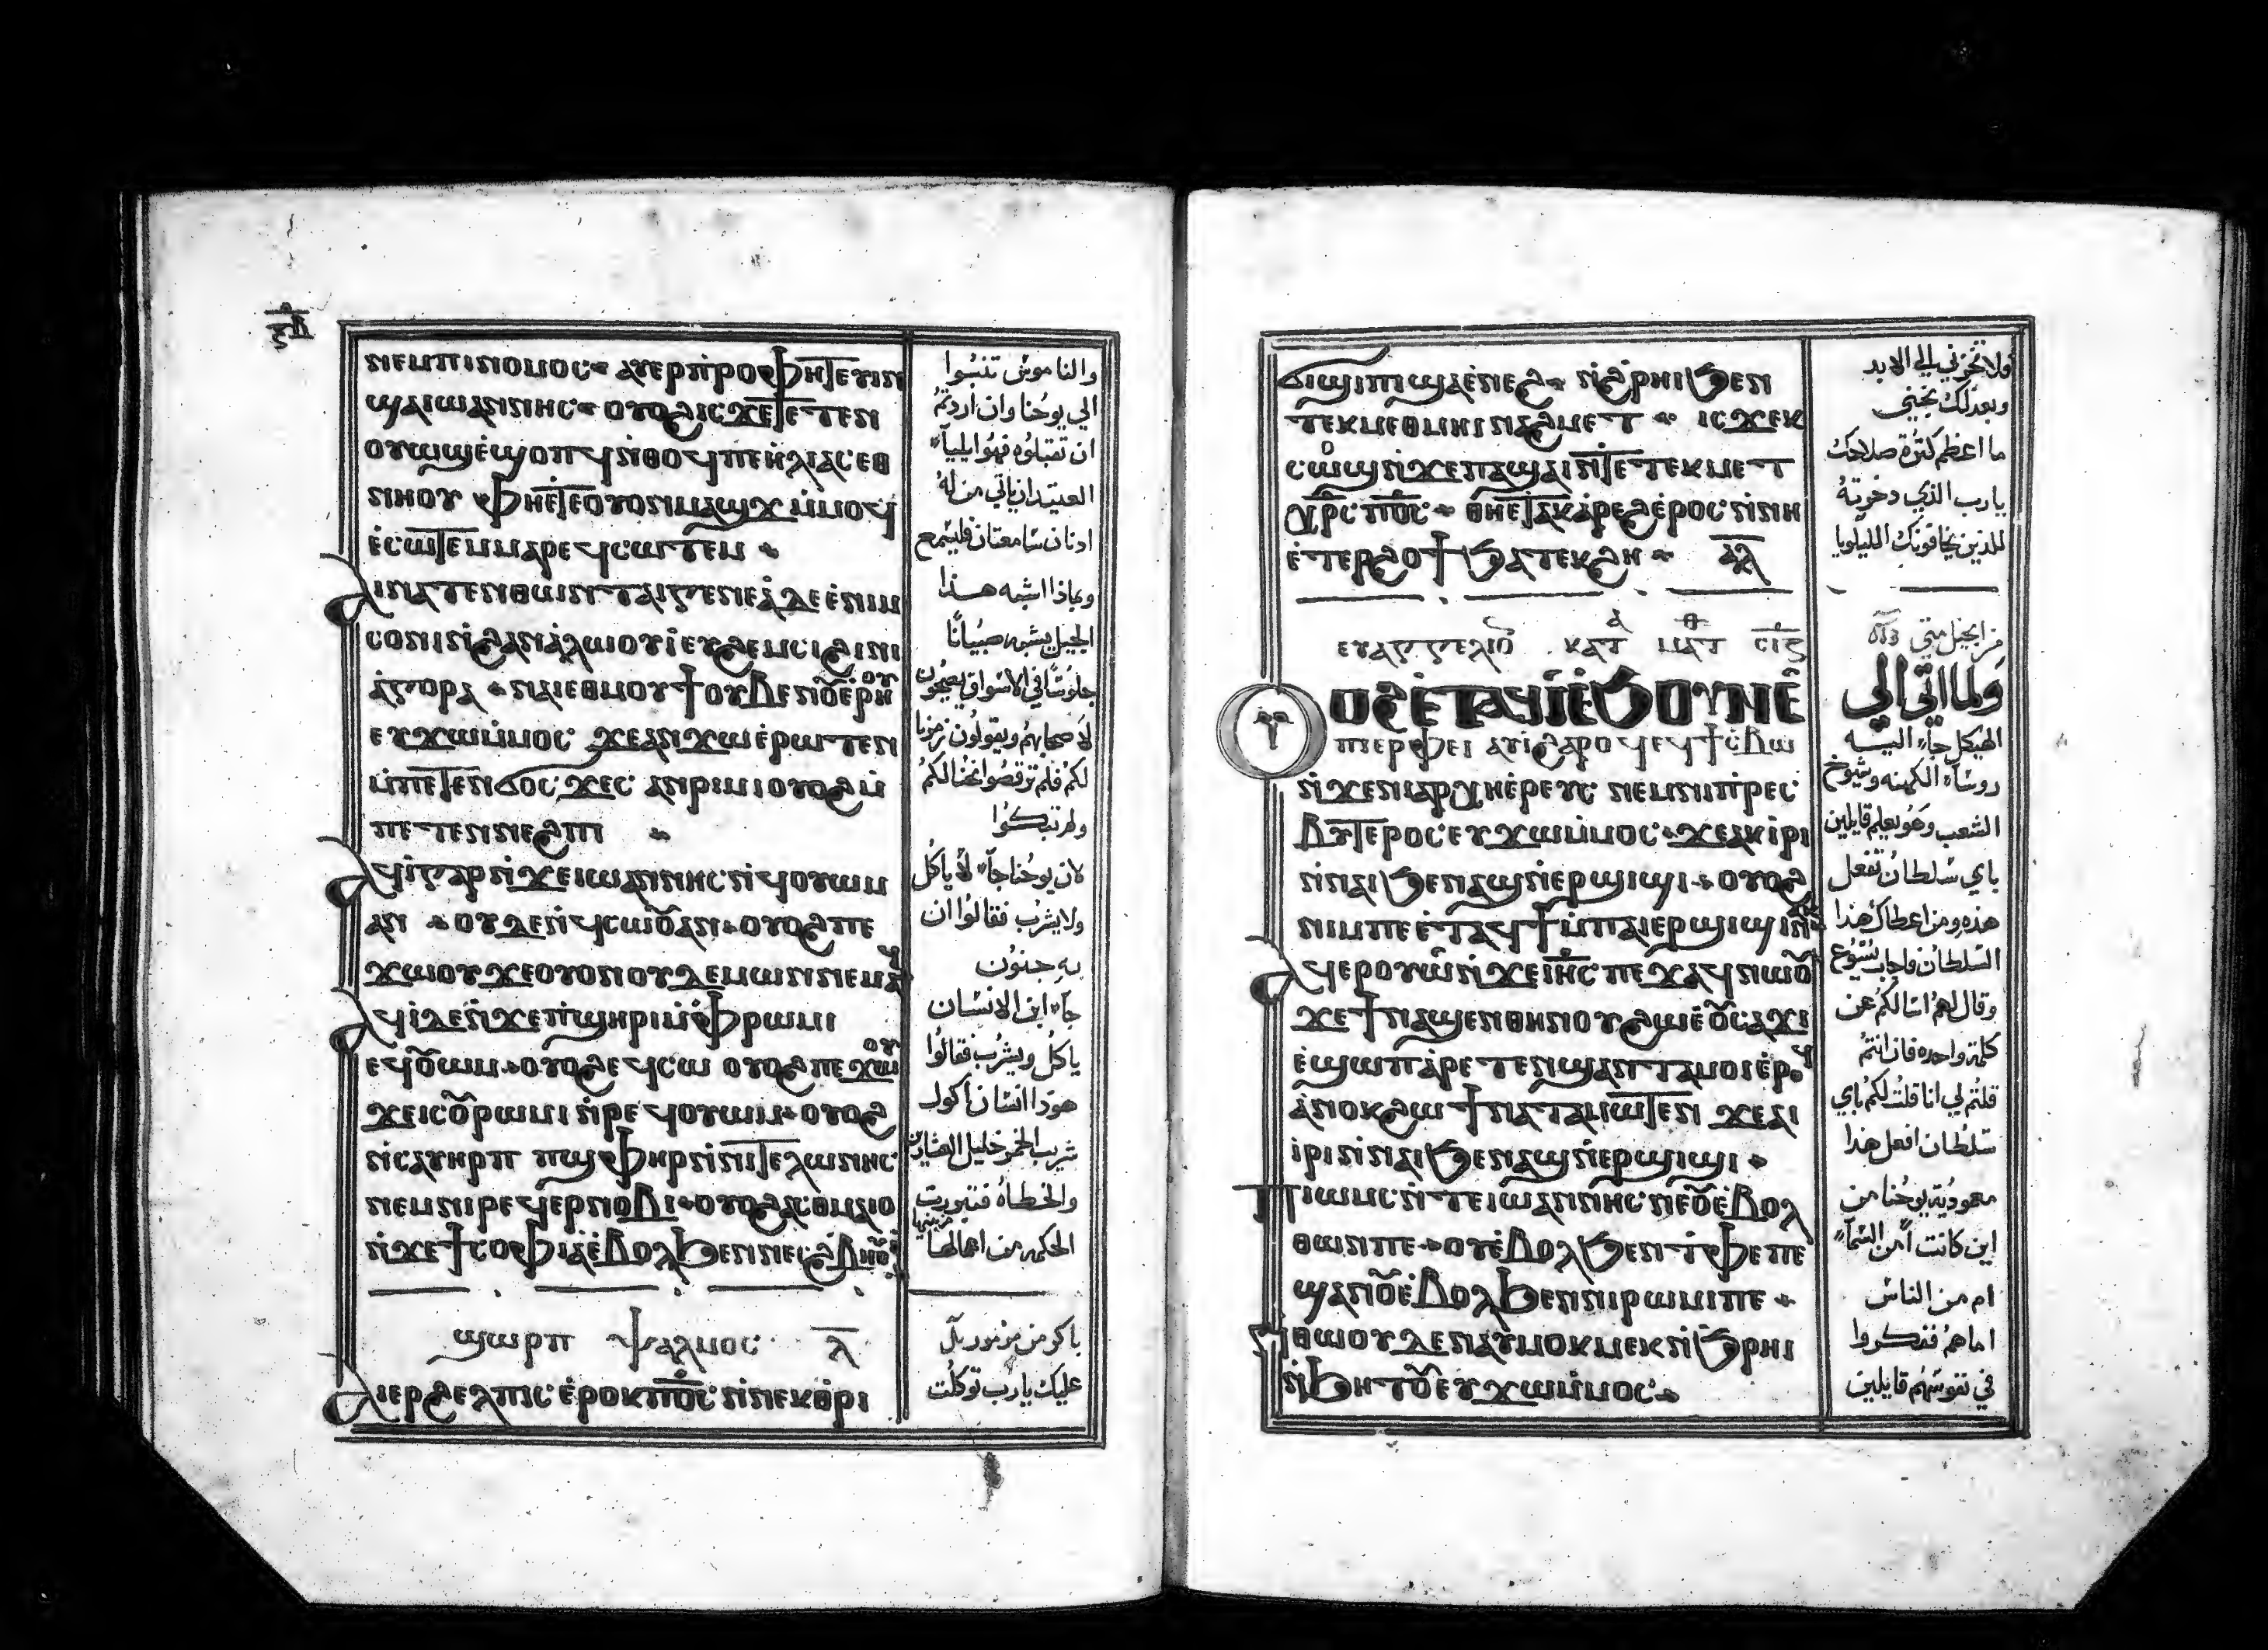 ⲋ̅ⲡ̅
ⲛⲉⲙⲡⲓⲛⲟⲙⲟⲥ ⁘ ⲁⲩⲉⲣⲡⲣⲟⲫⲏⲧⲉⲩⲓⲛ
ϣⲁⲓⲱⲁⲛⲛⲏⲥ ⁘ ⲟⲩⲟϩⲓⲥϫⲉⲧⲉⲧⲉⲛ
ⲟⲩⲱϣⲉ̀ϣⲟⲡϥⲛ̀ⲑⲟϥⲡⲉⲏⲗⲓⲁⲥⲉⲑ
ⲛⲏⲟⲩ ⲫⲏⲉⲧⲉⲟⲩⲟⲛⲙⲁϣϫⲙ̀ⲙⲟϥ
ⲉ̀ⲥⲱⲧⲉⲙⲙⲁⲣⲉϥⲥⲱⲧⲉⲙ ⁘
ⲁⲓⲛⲁⲧⲉⲛⲑⲱⲛⲧⲁⲓⲅⲉⲛⲉⲁ̀ⲇⲉⲉ̀ⲛⲓⲙ
ⲥⲟⲛⲓⲛ̀ϩⲁⲛⲁ̀ⲗⲱⲟⲩⲓ̀ⲉⲩϩⲉⲙⲥⲓϩⲓⲛⲓ
ⲁ̀ⲅⲟⲣⲁ ⁘ ⲛⲁⲓⲉⲑⲙⲟⲩϯⲟⲩⲃⲉⲛⲟⲩⲉ̀ⲣⲏⲟⲩ
ⲉⲩϫⲱⲙ̀ⲙⲟⲥ ϫⲉⲁⲛϫⲱⲉ̀ⲣⲱⲧⲉⲛ
ⲙ̀ⲡⲉⲧⲉⲛϭⲟⲥϫⲉⲥ ⲁⲛⲣⲓⲙⲓⲟⲩⲟϩⲙ̀
ⲡⲉⲧⲉⲛⲛⲉϩⲡⲓ ⁘
ⲁϥⲓ̀ⲅⲁⲣⲛ̀ϫⲉⲓⲱⲁⲛⲛⲏⲥⲛ̀ϥⲟⲩⲱⲙ
ⲁⲛ ⁘ ⲟⲩⲇⲉⲛ̀ϥⲥⲱⲟⲩⲁⲛ ⁘ ⲟⲩⲟϩⲡⲉ
ϫⲱⲟⲩϫⲉⲟⲩⲟⲛⲟⲩⲇⲉⲙⲱⲛⲛⲉⲙⲁϥ
ⲁϥⲓ̀ⲇⲉⲛ̀ϫⲉⲡ̀ϣⲏⲣⲓⲙ̀ⲫⲣⲱⲙⲓ
ⲉϥⲟⲩⲱⲙ ⁘ ⲟⲩⲟϩⲉϥⲥⲱ ⲟⲩⲟϩⲡⲉϫⲱⲟⲩ
ϫⲉⲓⲥⲟⲩⲣⲱⲙⲓ ⲛ̀ⲣⲉϥⲟⲩⲱⲙ ⁘ ⲟⲩⲟϩ
ⲛ̀ⲥⲁⲩⲏⲣⲡ ⲡϣⲫⲏⲣⲛ̀ⲛⲓⲧⲉⲗⲱⲛⲏⲥ
ⲛⲉⲙⲛⲓⲣⲉϥⲉⲣⲛⲟⲃⲓ ⁘ ⲟⲩⲟϩⲁⲥⲑⲙⲁⲓⲟ
ⲛ̀ϫⲉϯⲥⲟⲫⲓⲁⲉ̀ⲃⲟⲗϧⲉⲛⲛⲉⲥϩⲃⲏⲟⲩⲓ̀
ϣⲱⲣⲡ ⲯⲁⲗⲙⲟⲥ ⲗ̅
ⲁⲓⲉⲣϩⲉⲗⲡⲓⲥⲉ̀ⲣⲟⲕⲡ̅ⲟ̅ⲥ̅ⲛ̀ⲛⲉⲕⲑⲣⲓ
والناموس تنبوا
الي يوحنا وان اردتم
ان تقبلوه فهو ايليا
العتيد ان ياتي من له
ادنان سامعتان فليسمع
وبماذا اشبه هذا
الجيل يشبه صبيانا
جلوسا في الاسواق يصيحون
لاصحابهم ويقولون زمرنا
لكم فلم ترقصوا نحنا لكم
ولم تبكوا
لان يوحنا جاء لا ياكل
ولا يشرب فقالوا ان
به جنون
جاء ابن الانسان
ياكل ويشرب فقالوا
هودا انسان اكول
شريب الخمر خليل العشارين
والخطاه فتبررت
الحكمه من اعمالها
باكر من مزمور
عليك يارب توكلت
ϭⲓϣⲓⲡⲓϣⲁⲉ̀ⲛⲉϩ ⁘ ⲛ̀ϩⲣⲏⲓϧⲉⲛ
ⲧⲉⲕⲙⲉⲑⲙⲏⲓⲛⲁϩⲙⲉⲧ ⁘ ⲓⲥϫⲉⲕ
ⲥⲱⲟⲩϣⲛ̀ϫⲉⲡⲁϣⲁⲓⲛ̀ⲧⲉⲧⲉⲕⲙⲉⲧ
ⲭ̅ⲣ̅ⲥ̅ⲡ̅ⲟ̅ⲥ̅ ⁘ ⲑⲏⲉⲧⲁⲕⲁ̀ⲣⲉϩⲉ̀ⲣⲟⲥⲛ̀ⲛⲏ
ⲉ̀ⲧⲉⲣϩⲟϯϧⲁⲧⲉⲕϩⲏ ⁘ ⲁ̅ⲗ̅
ⲉⲩⲁⲅⲅⲉⲗⲓⲟⲛ ⲕⲁⲧⲁ ⲙⲁⲧⲑ ⲥ̅ⲓ̅ⲋ̅
ⲟⲩⲟϩⲉ̀ⲧⲁϥⲓ̀ⲉ̀ϧⲟⲩⲛⲉ̀
ⲡⲓⲉⲣⲫⲉⲓ ⲁⲩⲓ̀ϩⲁⲣⲟϥⲉϥϯⲥ̀ⲃⲱ
ⲛ̀ϫⲉⲛⲓⲁⲣⲭⲏⲉ̀ⲣⲉⲩⲥ ⲛⲉⲙⲛⲓⲡ̀ⲣⲉⲥ
ⲃⲩⲧⲉⲣⲟⲥⲉⲩϫⲱⲙ̀ⲙⲟⲥ ⁘ ϫⲉⲁⲕⲓ̀ⲣⲓ
ⲛ̀ⲛⲁⲓϧⲉⲛⲁϣⲛ̀ⲉⲣϣⲓϣⲓ ⁘ ⲟⲩⲟϩ
ⲛⲓⲙⲡⲉⲉ̀ⲧⲁϥϯⲙ̀ⲡⲁⲓⲉⲣϣⲓϣⲓⲛⲁⲕ
ⲁϥⲉⲣⲟⲩⲱⲛ̀ϫⲉⲓ̅ⲏ̅ⲥ̅ⲡⲉϫⲁϥⲛⲱⲟⲩ
ϫⲉϯⲛⲁϣⲉⲛⲑⲏⲛⲟⲩϩⲱⲉ̀ⲟⲩⲥⲁϫⲓ
ⲉ̀ϣⲱⲡⲁⲣⲉⲧⲉⲛϣⲁⲛⲧⲁⲙⲟⲓⲉ̀ⲣⲟϥ
ⲁ̀ⲛⲟⲕϩⲱϯⲛⲁⲧⲁⲙⲱⲧⲉⲛ ϫⲉⲁⲓ
ⲓ̀ⲣⲓⲛ̀ⲛⲁⲓϧⲉⲛⲁϣⲛ̀ⲉⲣϣⲓϣⲓ ⁘
ⲡⲓⲱⲙⲥⲛ̀ⲧⲉⲓⲱⲁⲛⲛⲏⲥⲛⲉⲟⲩⲉ̀ⲃⲟⲗ
ⲑⲱⲛⲡⲉ ⁘ ⲟⲩⲉ̀ⲃⲟⲗϧⲉⲛⲧ̀ⲫⲉⲡⲉ
ϣⲁⲛⲟⲩⲉ̀ⲃⲟⲗϧⲉⲛⲛⲓⲣⲱⲙⲓⲡⲉ ⁘
ⲛ̀ⲑⲱⲟⲩⲇⲉⲛⲁⲩⲙⲟⲕⲙⲉⲕⲛ̀ϧⲣⲏⲓ
ⲛ̀ϧⲏⲧⲟⲩⲉⲩϫⲱⲙ̀ⲙⲟⲥ ⁘
فلا تخزني الي الابد
وبعدلك نجيني
ما اعظم كثرة صلاحك
يارب الذي دخرته
للذين يخافونك الليلويا
من انجيل متي
ولما اتي الي
الهيكل جاء اليه
روساء الكهنه وشيوخ
الشعب وهو يعلم قايلين
باي سلطان تفعل
هذه ومن اعطاك هذا
السلطان فاجاب يسوع
وقال لهم اسالكم عن
كلمة واحده فان انتم
قلتم لي انا قلت لكم باي
سلطان افعل هذا
معمودية يوحنا من
اين كانت امن السماء
ام من الناس
اما هم ففكروا
في نفوسهم قايلين